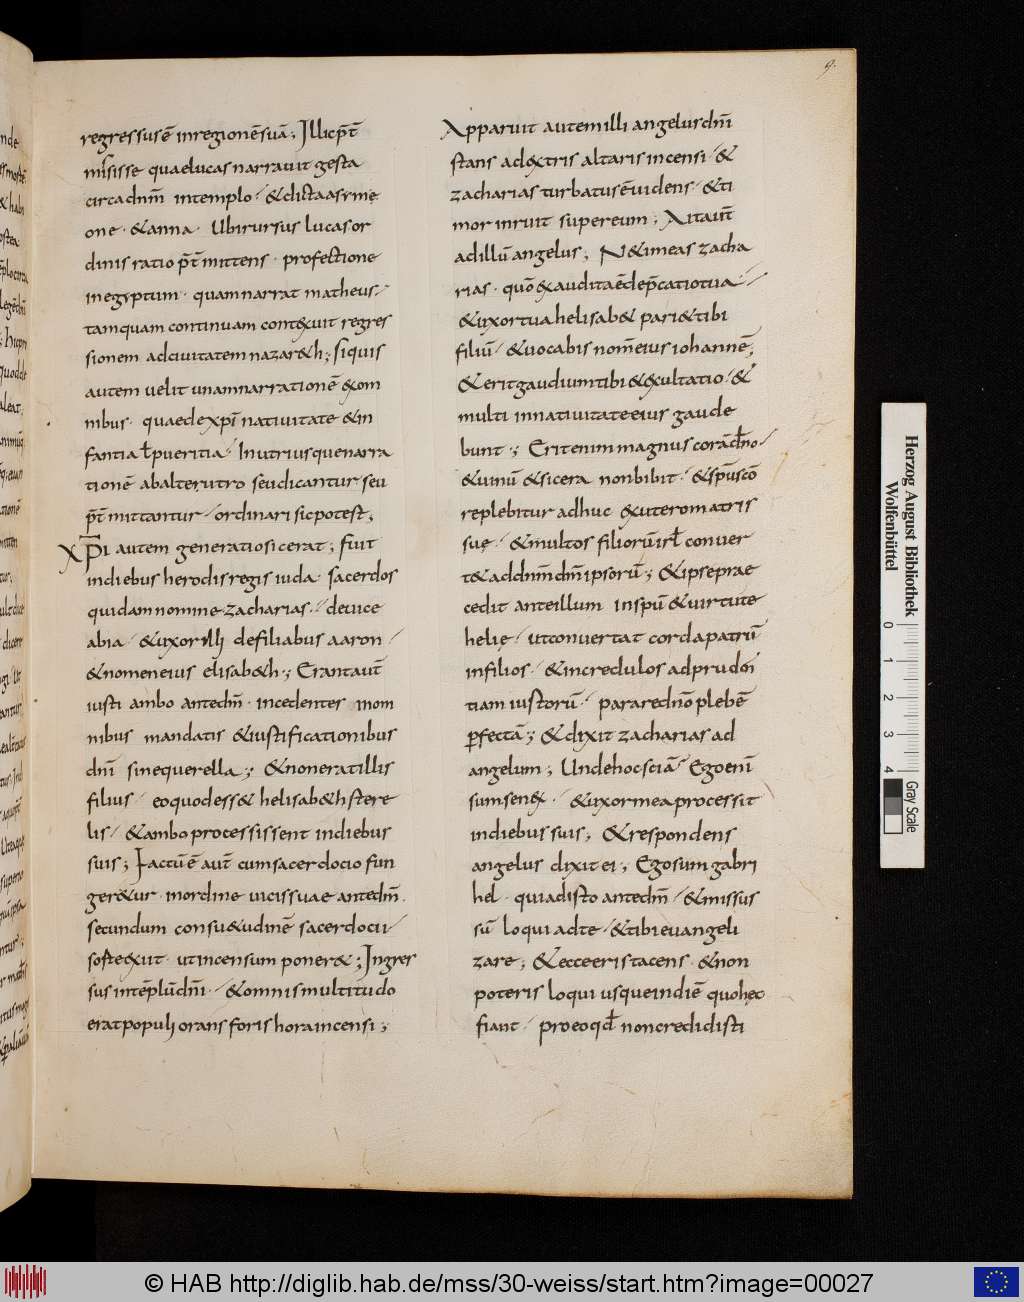 9.
regressus ē inregionē suā; Illic p̄t
misisse quaelucas narrauit gesta
circa dnm̄ intemplo · & dicta asyme
one · & anna · Ubi rursus lucas or
dinis ratio p̄t mittens · profectione
inegyptum · quam narrat matheus ·
tamquam continuam contexuit regres
sionem adciuitatem nazar&h; siquis
autem uelit unam narrationē ex om
nibus · quaede xp̄i natiuitate & in
fantia ł pueritia · In utriusque narra
tionē ab alterutro seu dicantur seu
p̄t mittantur · ordinari sic potest;
Xp̄i autem generatio sic erat; fuit
indiebus herodis regis iuda · sacerdos
quidam nomine zacharias · deuice
abia · & uxor illi defiliabus aaron
& nomen eius elisab&h ·; Erant aut̄
iusti ambo ante dm̄ · incedentes in om
nibus mandatis & iustificationibus
dn̄i sine querella; & non erat illis
filius · eo quod ess& helisab&h stere
lis · & ambo processissent in diebus
suis; Factū ē aut̄ cum sacerdocio fun
ger&ur · in ordine uicis suae ante dm̄ ·
secundum consu&udinē sacerdocii
sorte exiit · ut incensum poner&; Ingres
sus in tēplū dn̄i · & omnis multitudo
erat populi orans foris hora incensi;
Apparuit autem illi angelus dn̄i
stans a dextris altaris incensi · &
zacharias turbatus ē uidens · & ti
mor inruit super eum; Ait aut̄
ad illū angelus; N& imeas zacha
rias · quō exaudita ē dep̄catio tua ·
& uxor tua helisab& pari& tibi
filiū · & uocabis nom̄ eius iohannē;
& erit gaudium tibi & exultatio · &
multi in natiuitate eius gaude
bunt ·; Erit enim magnus corā dn̄o
& uinū & sicera non bibit · & sp̄u scō
replebitur adhuc ex utero matris
suę · & multos filiorū isrł conuer
t& ad dn̄m dm̄ ipsorū ·; & ipse prae
cedit ante illum in sp̄u & uirtute
helię · ut conuertat corda patrū
in filios · & incredulos ad prudēn
tiam iustorū · parare dn̄o plebē
ꝑfectā ·; & dixit zacharias ad
angelum; Unde hoc sciā · Ego enī
sum senex · & uxor mea processit
in diebus suis; & respondens
angelus dixit ei ·; Ego sum gabri
hel · qui adisto ante dm̄ · & missus
sū loqui ad te · & tibi euangeli
zare; & ecce eris tacens · & non
poteris loqui usque in diē quo hęc
fiant · pro eo qđ non credidisti
Herzog August Bibliothek
Wolfenbüttel
0 1 2 3 4
Gray Scale
© HAB http://diglib.hab.de/mss/30-weiss/start.htm?image=00027